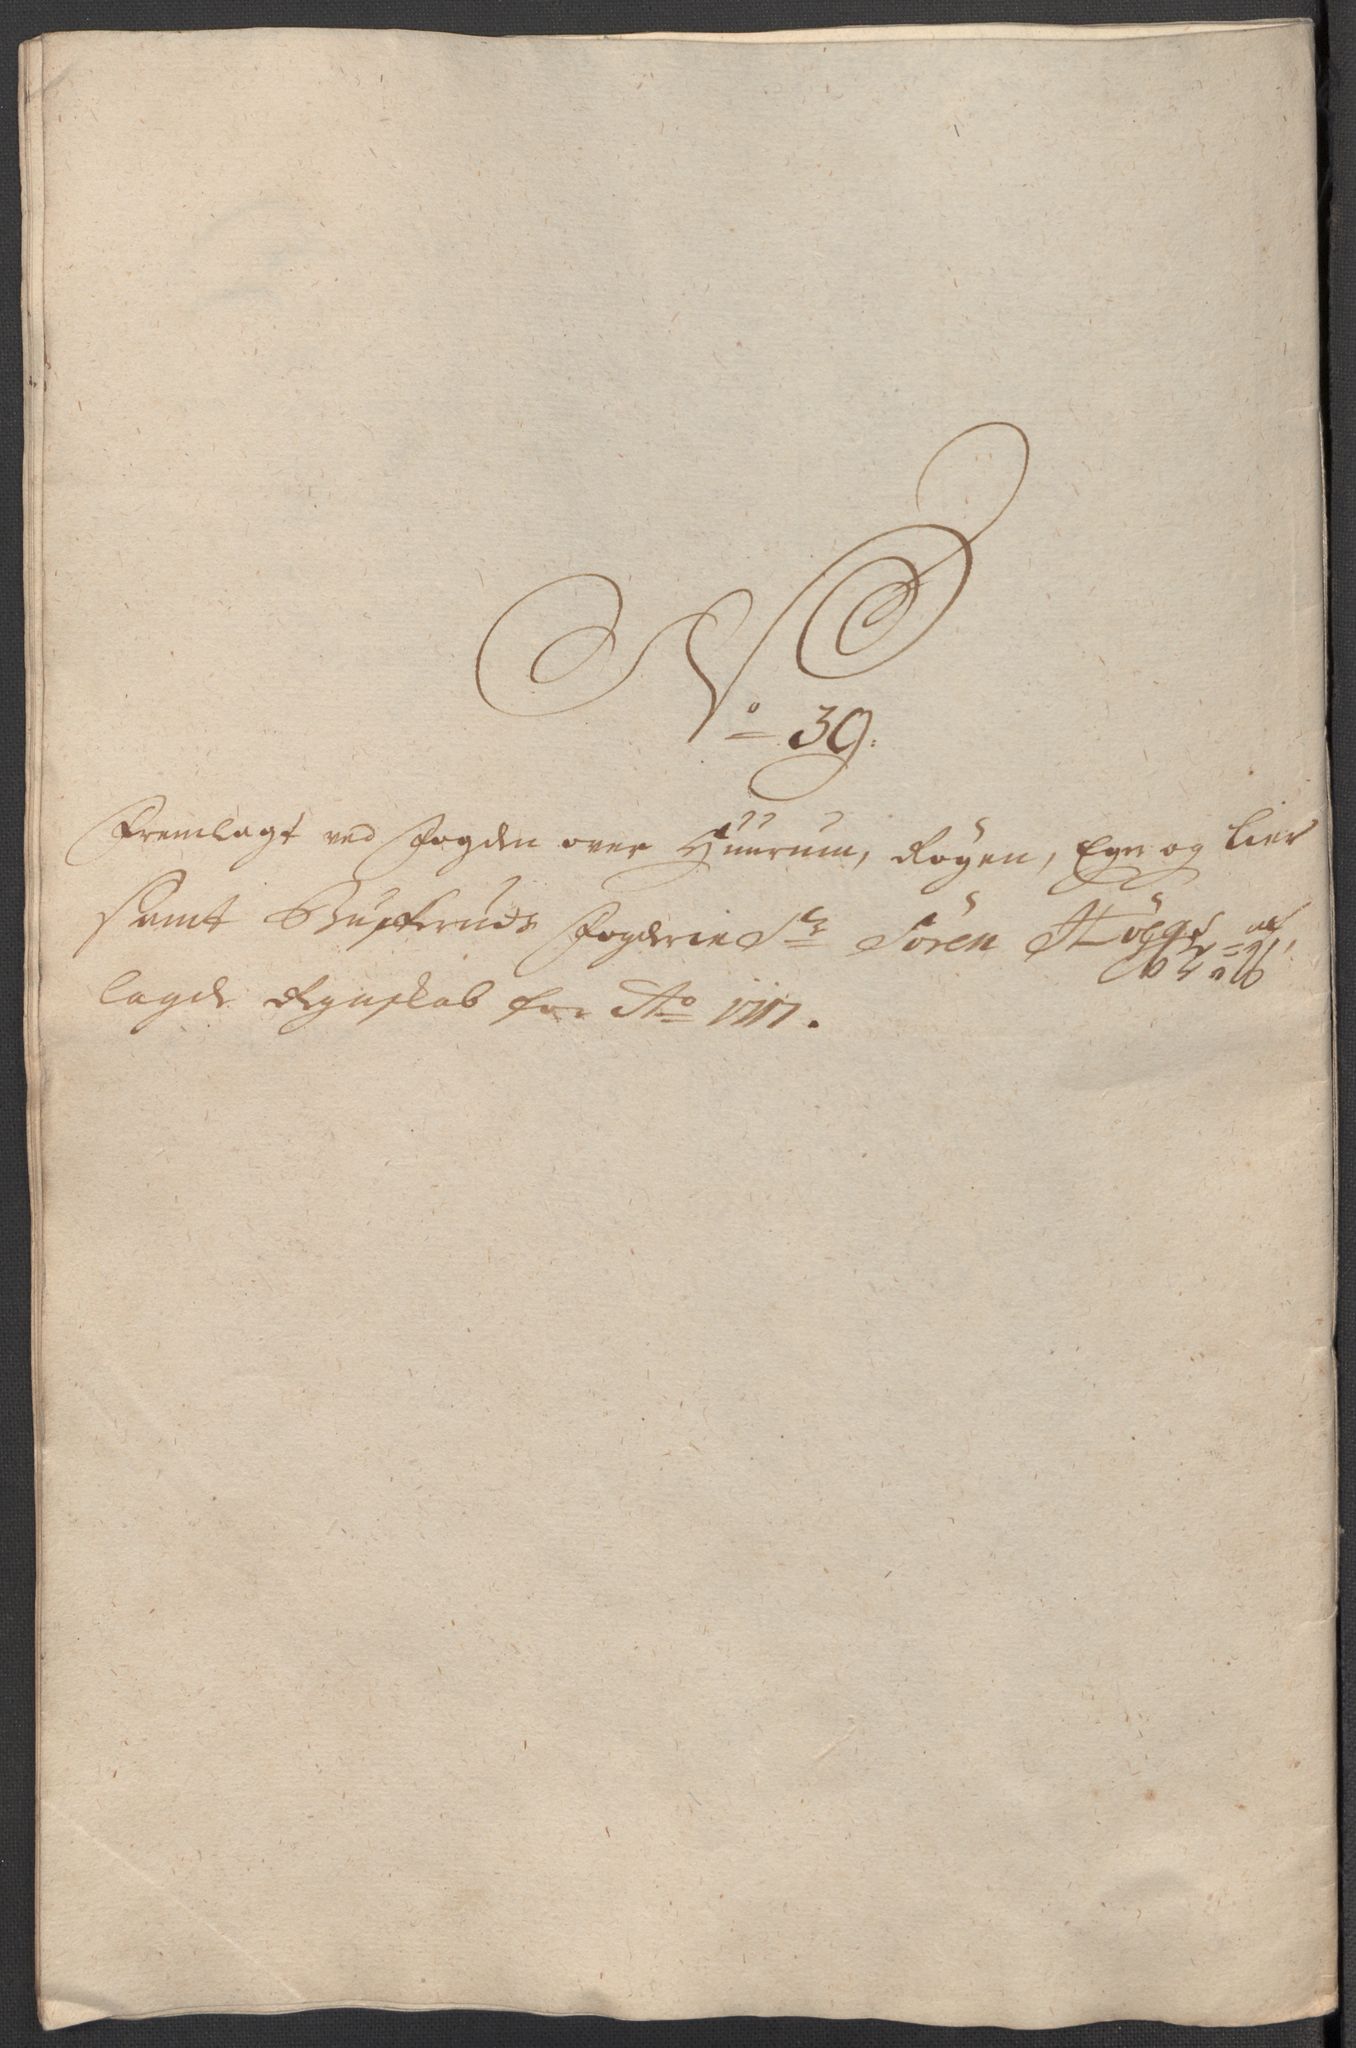 No 39.
Fremlagt ved Fogden over Huurum, Röyen, Eger og Lier
samt Buskeruds Fogderie Sr Sören
lagde Regnskab for Ao 1717.